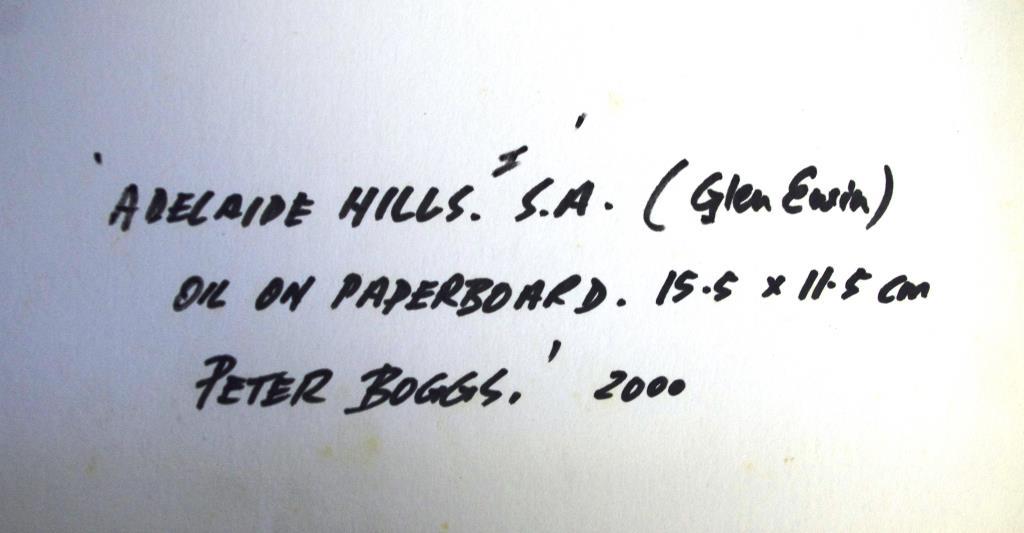 'ADELAIDE HILLS. I' S.A. (Glen Ewin)
OIL ON PAPERBOARD. 15.5 x 11.5 cm
PETER BOGGS.' 2000